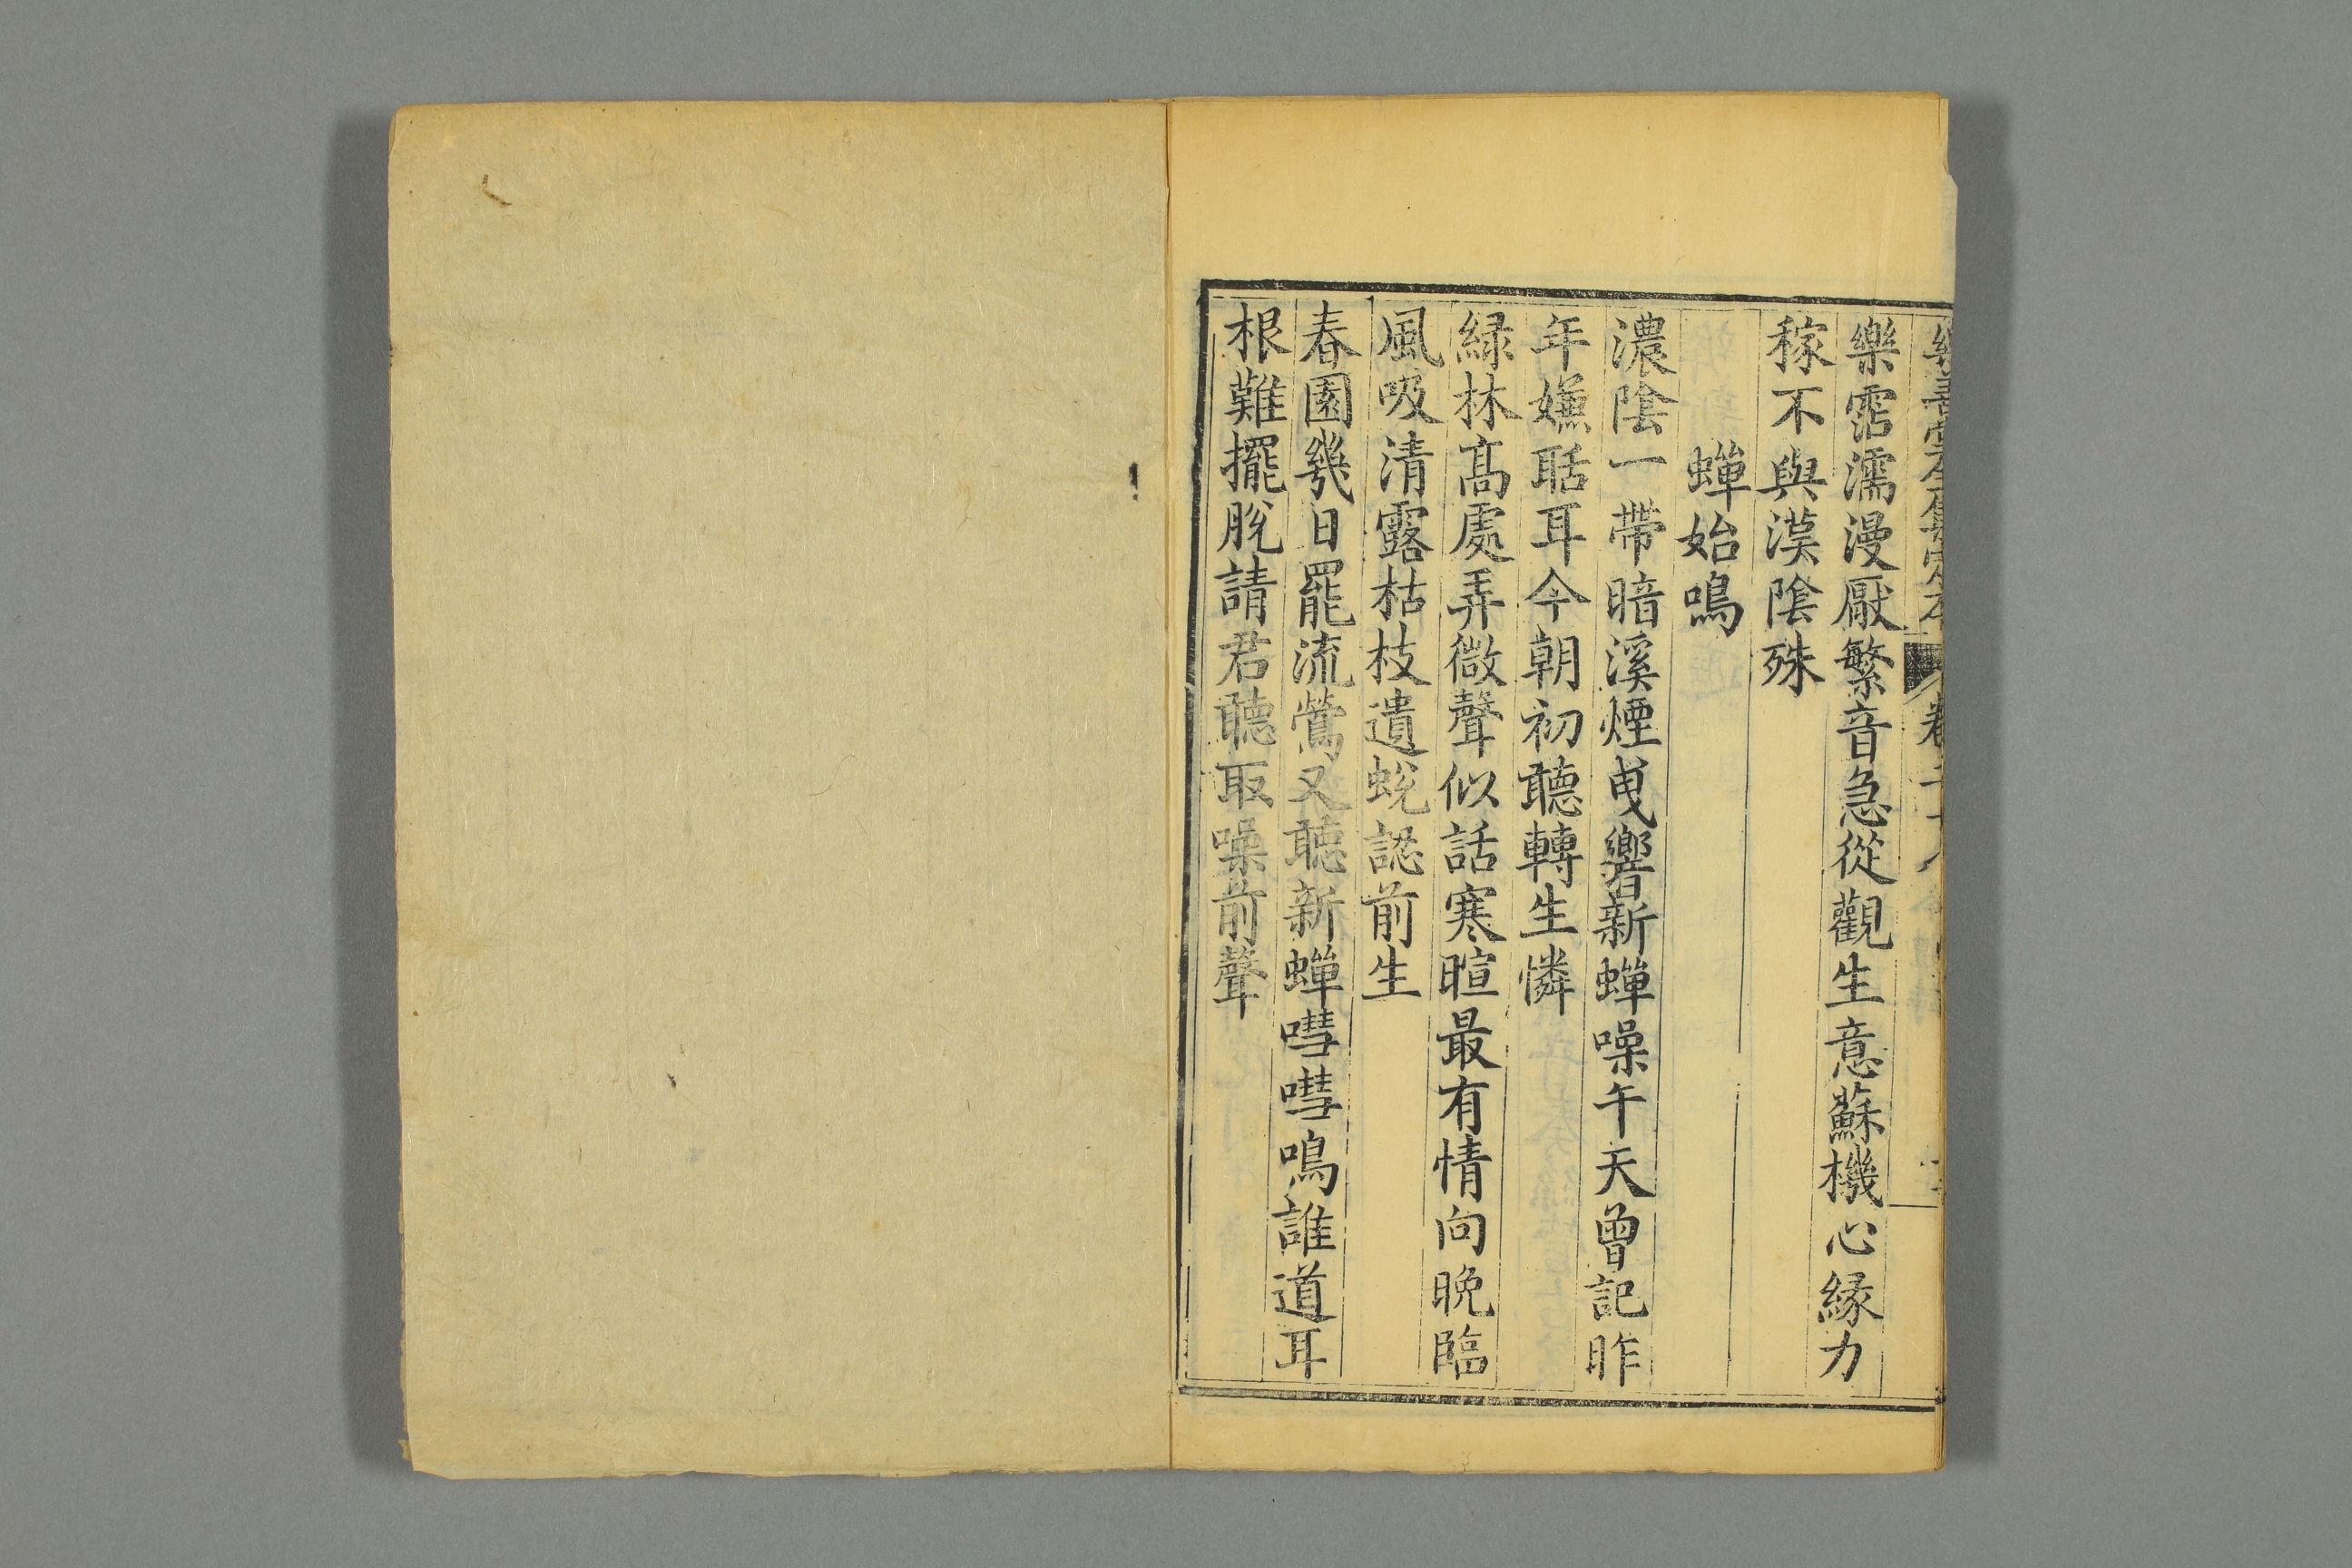 樂霑濡漫厭繁音急從觀生意蘇機心緣力
稼不與漢陰殊
蟬始鳴
濃陰一帶暗溪煙曳響新蟬噪午天曾記昨
年嫌聒耳今朝初聽轉生憐
緑林高處弄微聲似話寒暄最有情向晚臨
風吸清露枯枝遺蛻認前生
春園幾日罷流鶯又聽新蟬嘒嘒鳴誰道耳
根難擺脫請君聽取噪前聲